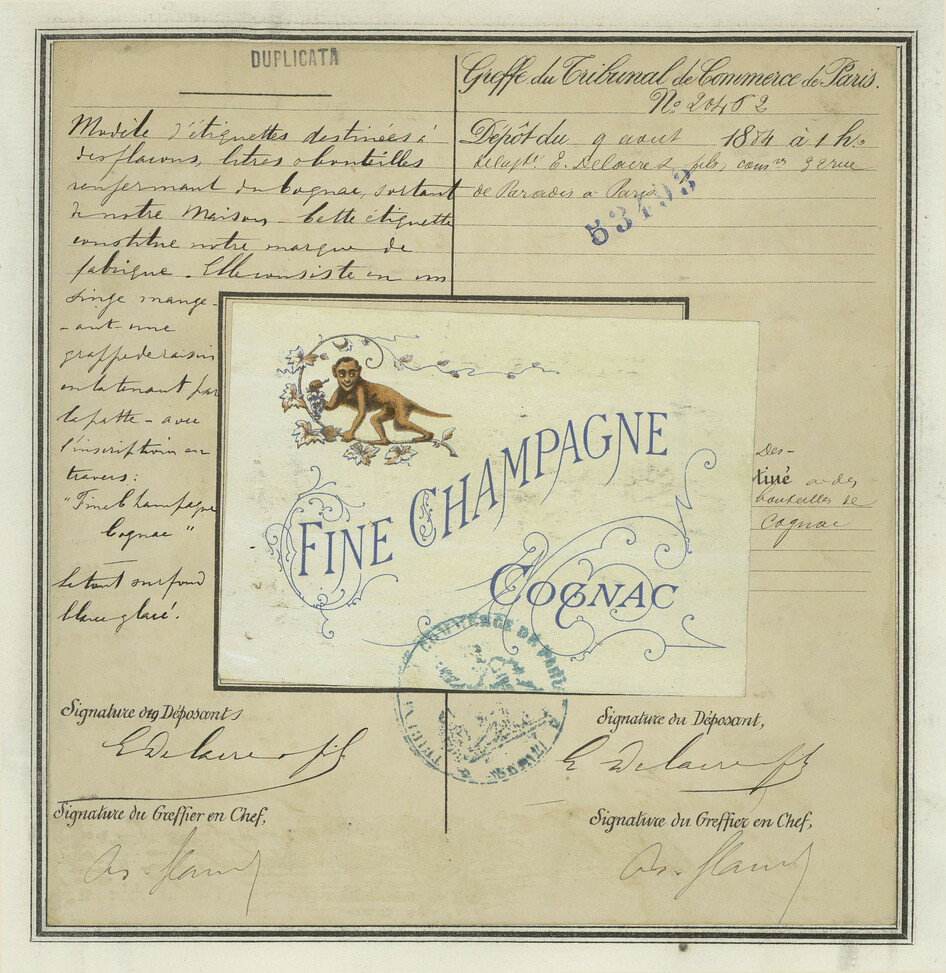 DUPLICATA
Modèle d'étiquettes destinées à
des flacons, litres o bouteilles
renfermant du Cognac, sortant
de notre Maison. Cette étiquette
constitue notre marque de
fabrique. Elle consiste en un
singe mange-
-ant une
grappe de raisin
en la tenant par
la patte - avec
l'inscription en
travers:
"Fine Champagne
Cognac"
Le tout sur fond
blanc glacé.
Greffe du Tribunal de Commerce de Paris.
No 20462
Dépôt du 9 aout 1884 à 1 h
E. Delaire & fils, rue
de Paradis a Paris
53493
FINE CHAMPAGNE
COGNAC
Des-
tiné a des
bouteilles de
Cognac
COMMERCE DE PARIS
Signature des Déposants
E Delaire & fils
Signature du Greffier en Chef,
Signature du Déposant,
E Delaire & fils
Signature du Greffier en Chef,